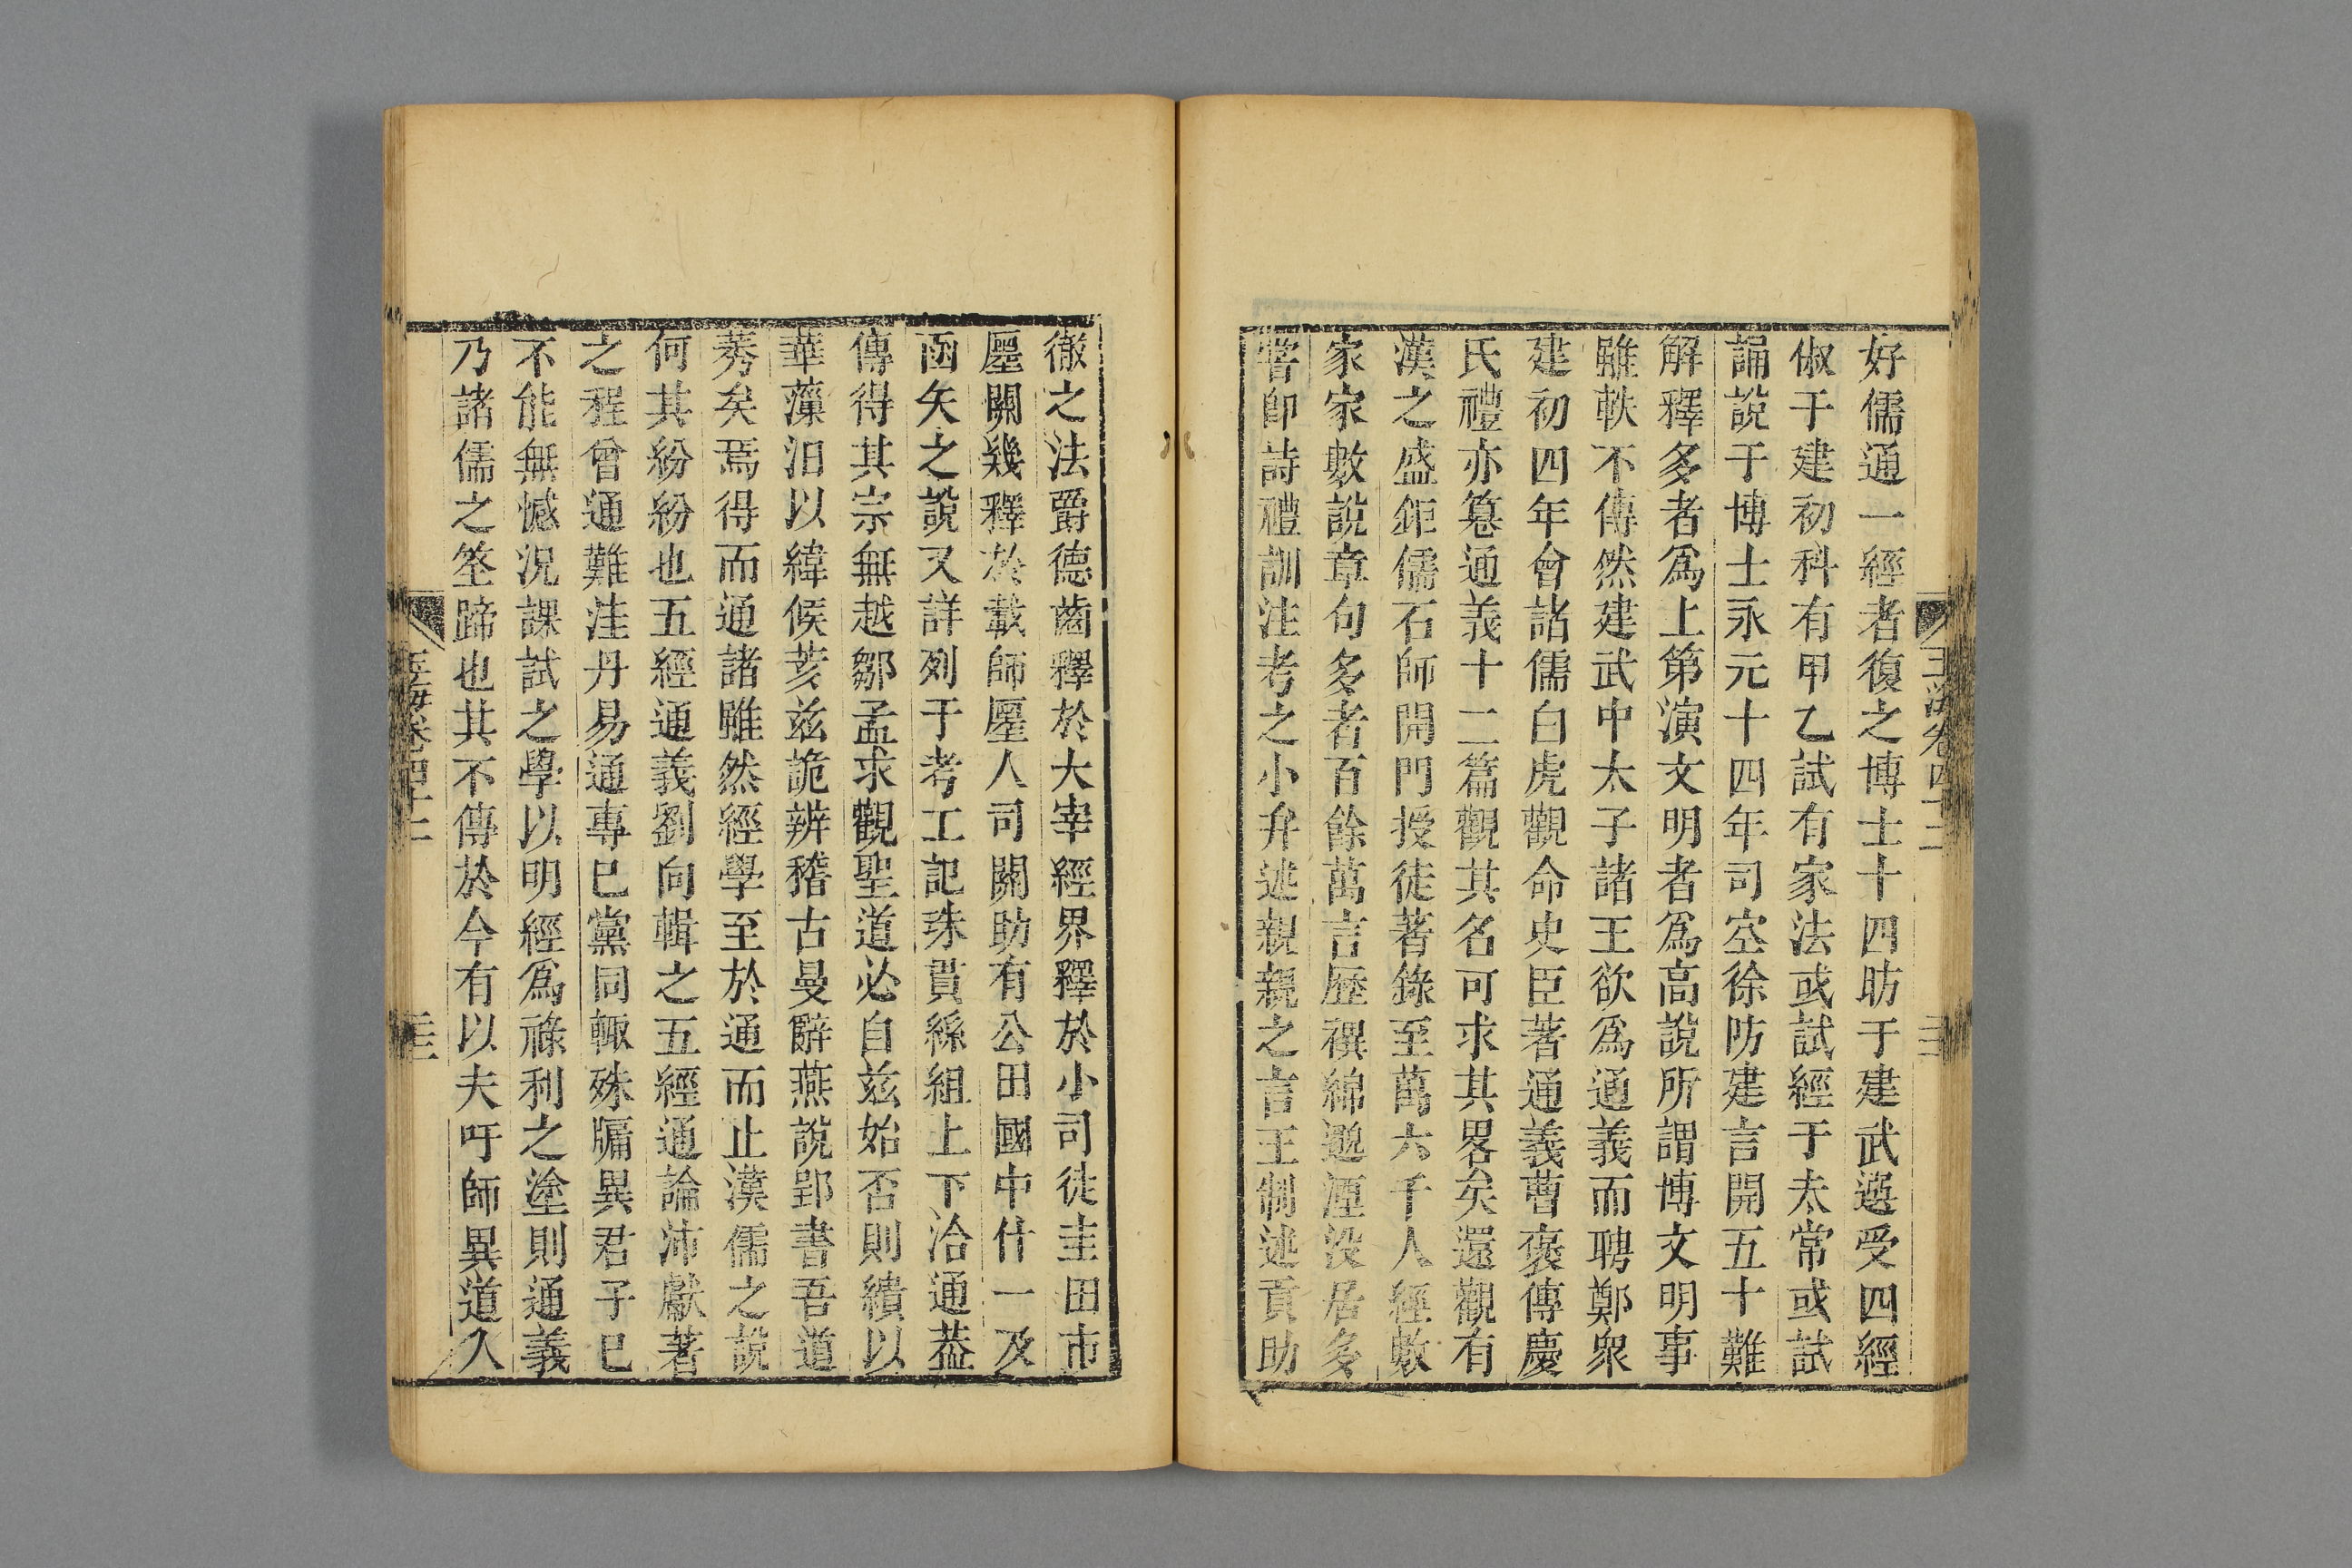 好儒通一經者復之博士十四昉于建武選受四經
俶于建初科有甲乙試有家法或試經于太常或試
誦說于博士永元十四年司空徐防建言開五十難
解釋多者爲上第演文明者爲高說所謂博文明事
雖軼不傳然建武中太子諸王欲爲通義而聘鄭衆
建初四年會諸儒白虎觀命史臣著通義曹褒傳慶
氏禮亦篹通義十二篇觀其名可求其畧矣還觀有
漢之盛鉅儒石師開門授徒著錄至萬六千人經數
家家數說章句多者百餘萬言歷禩綿邈湮没居多
嘗卽詩禮訓注考之小弁述親親之言王制述貢助
徹之法爵德齒釋於大宰經界釋於小司徒圭田市
廛關幾釋於載師廛人司關助有公田國中什一及
函矢之說又詳列于考工記珠貫絲組上下洽通葢
傳得其宗無越鄒孟求觀聖道必自兹始否則繢以
華藻汨以緯候荄兹詭辨稽古曼辭燕說郢書吾道
莠矣焉得而通諸雖然經學至於通而止漢儒之說
何其紛紛也五經通義劉向輯之五經通論沛獻著
之程曾通難洼丹易通專巳黨同輒殊牖異君子巳
不能無憾況課試之學以明經爲祿利之塗則通義
乃諸儒之筌蹄也其不傳於今有以夫吁師異道人
玉海卷四十二